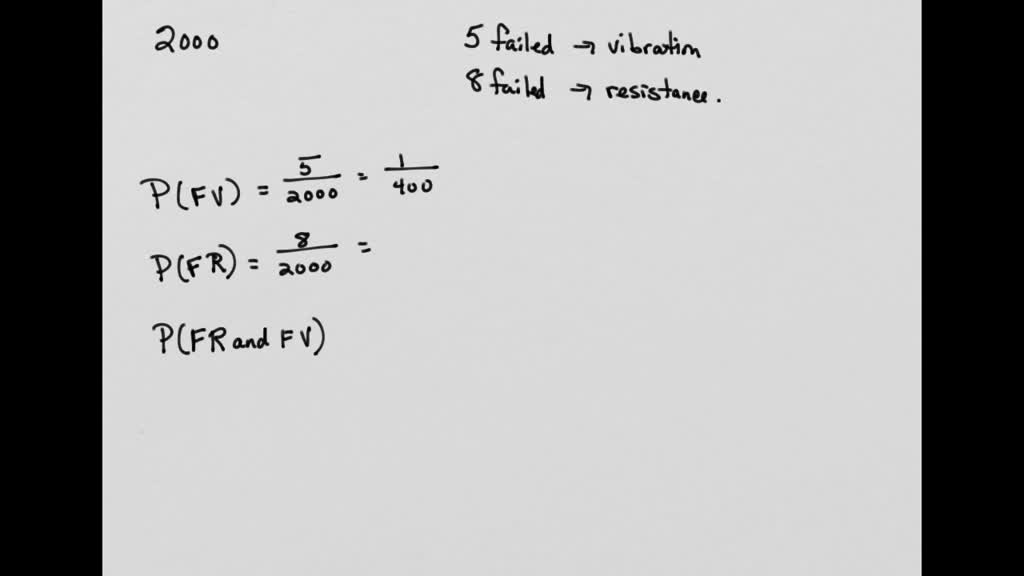 2000
5 failed → vibration
8 failed → resistance.
P(FV) = 5/2000 = 1/400
P(FR) = 8/2000 =
P(FR and FV)